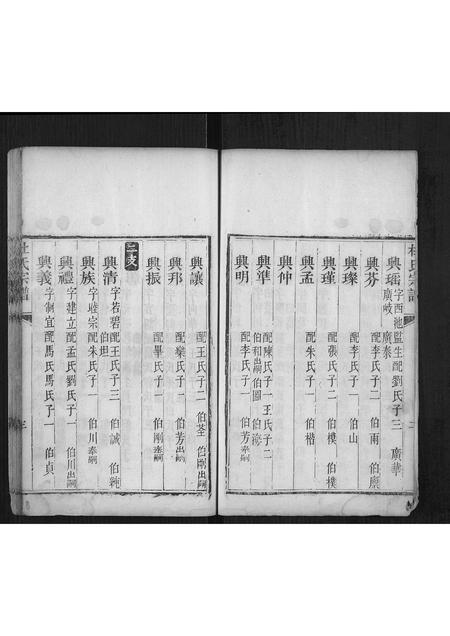 杜氏宗譜
興瑀 字西池監生配劉氏子三 廣華
廣岐 廣泰
興芬 配李氏子二 伯雨 伯麃
興璨 配李氏子一 伯山
興瑾 配張氏子二 伯樸 伯樸
興孟 配朱氏子一 伯楷
興仲
興準 配陳氏子一王氏子二
伯和出嗣伯圖 伯海
興明 配李氏子一 伯芳奉嗣
興讓 配王氏子二 伯荃 伯剛出嗣
興邦 配欒氏子二 伯芳出嗣
興振 配畢氏子一 伯剛奉嗣
二支
興清 字若碧配王氏子三 伯誠 伯純
伯坦
興族 字睦宗配朱氏子一 伯川奉嗣
興禮 字建立配孟氏劉氏子一 伯川出嗣
興義 字制宜配馬氏馬氏子一 伯貞
杜氏宗譜
三